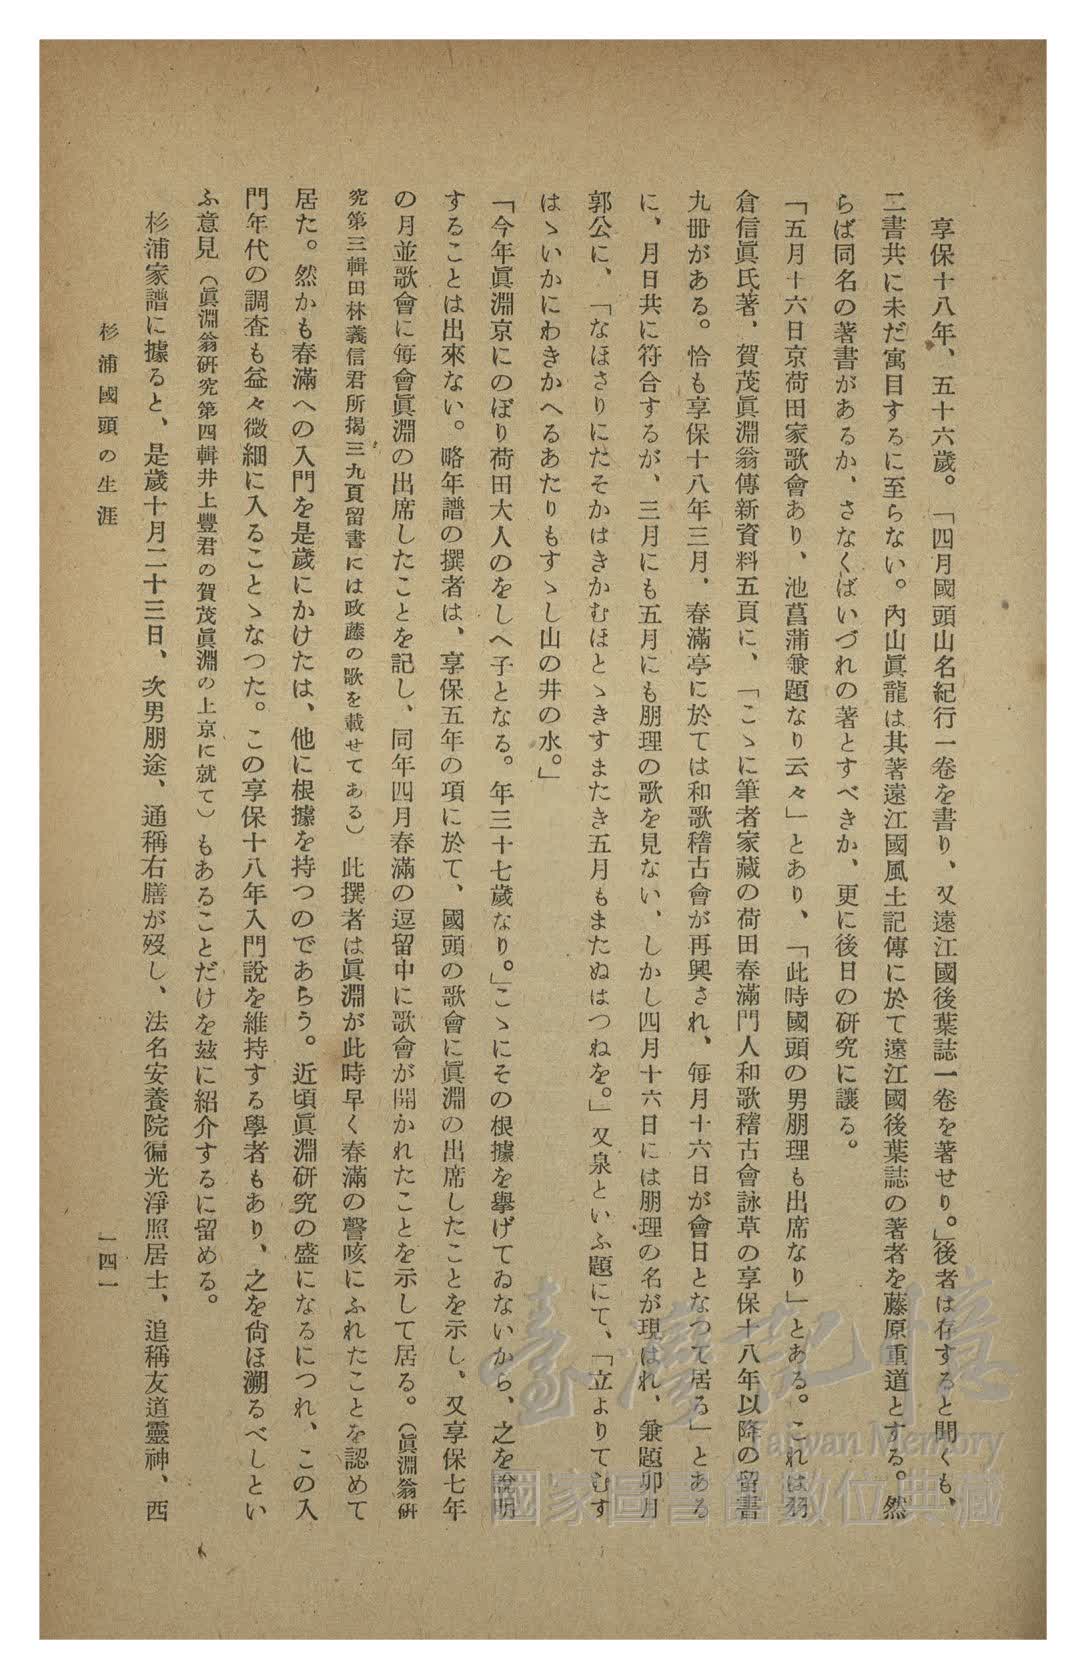 享保十八年、五十六歲。「四月國頭山名紀行一卷を書り、又遠江國後葉誌一卷を著せり。」後者は存すると聞くも、
二書共に未だ寓目するに至らない。內山眞龍は其著遠江國風土記傳に於て遠江國後葉誌の著者を藤原重道とする。然
らば同名の著書があるか、さなくばいづれの著とすべきか、更に後日の硏究に讓る。
「五月十六日京荷田家歌會あり、池菖蒲兼題なり云々」とあり、「此時國頭の男朋理も出席なり」とある。これは羽
倉信眞氏著，賀茂眞淵翁傳新資料五頁に、「こゝに筆者家藏の荷田春滿門人和歌稽古會詠草の享保十八年以降の留書
九册がある。恰も享保十八年三月，春滿亭に於ては和歌稽古會が再興され、每月十六日が會日となつて居る」とある
に、月日共に符合するが、三月にも五月にも朋理の歌を見ない、しかし四月十六日には朋理の名が現はれ、兼題卯月
郭公に、「なほさりにたそかはきかむほとゝきすまたき五月もまたぬはつねを。」又泉といふ題にて、「立よりてむす
はゝいかにわきかへるあたりもすゝし山の井の水。」
「今年眞淵京にのぼり荷田大人のをしへ子となる。年三十七歲なり。」こゝにその根據を擧げてゐないから、之を說明
することは出來ない。略年譜の撰者は、享保五年の項に於て、國頭の歌會に眞淵の出席したことを示し、又享保七年
の月並歌會に每會眞淵の出席したことを記し、同年四月春滿の逗留中に歌會が開かれたことを示して居る。（眞淵翁硏
究第三輯田林義信君所揭三九頁留書には政藤の歌を載せてある）此撰者は眞淵が此時早く春滿の謦咳にふれたことを認めて
居た。然かも春滿への入門を是歲にかけたは、他に根據を持つのであらう。近頃眞淵硏究の盛になるにつれ、この入
門年代の調査も益々微細に入ることゝなつた。この享保十八年入門說を維持する學者もあり、之を尙ほ溯るべしとい
ふ意見（眞淵翁硏究第四輯井上豐君の賀茂眞淵の上京に就て）もあることだけを玆に紹介するに留める。
杉浦家譜に據ると、是歲十月二十三日、次男朋途、通稱右膳が歿し、法名安養院徧光淨照居士、追稱友道靈神、西
杉浦國頭の生涯
一四一
臺灣記憶
Taiwan Memory
國家圖書館數位典藏